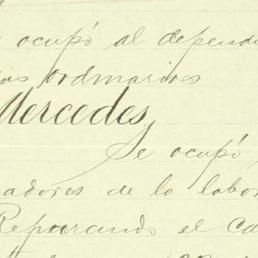 ocupó al depend
ordinarios
Mercedes
Se ocupó
adores de la labor
Reparando el ca